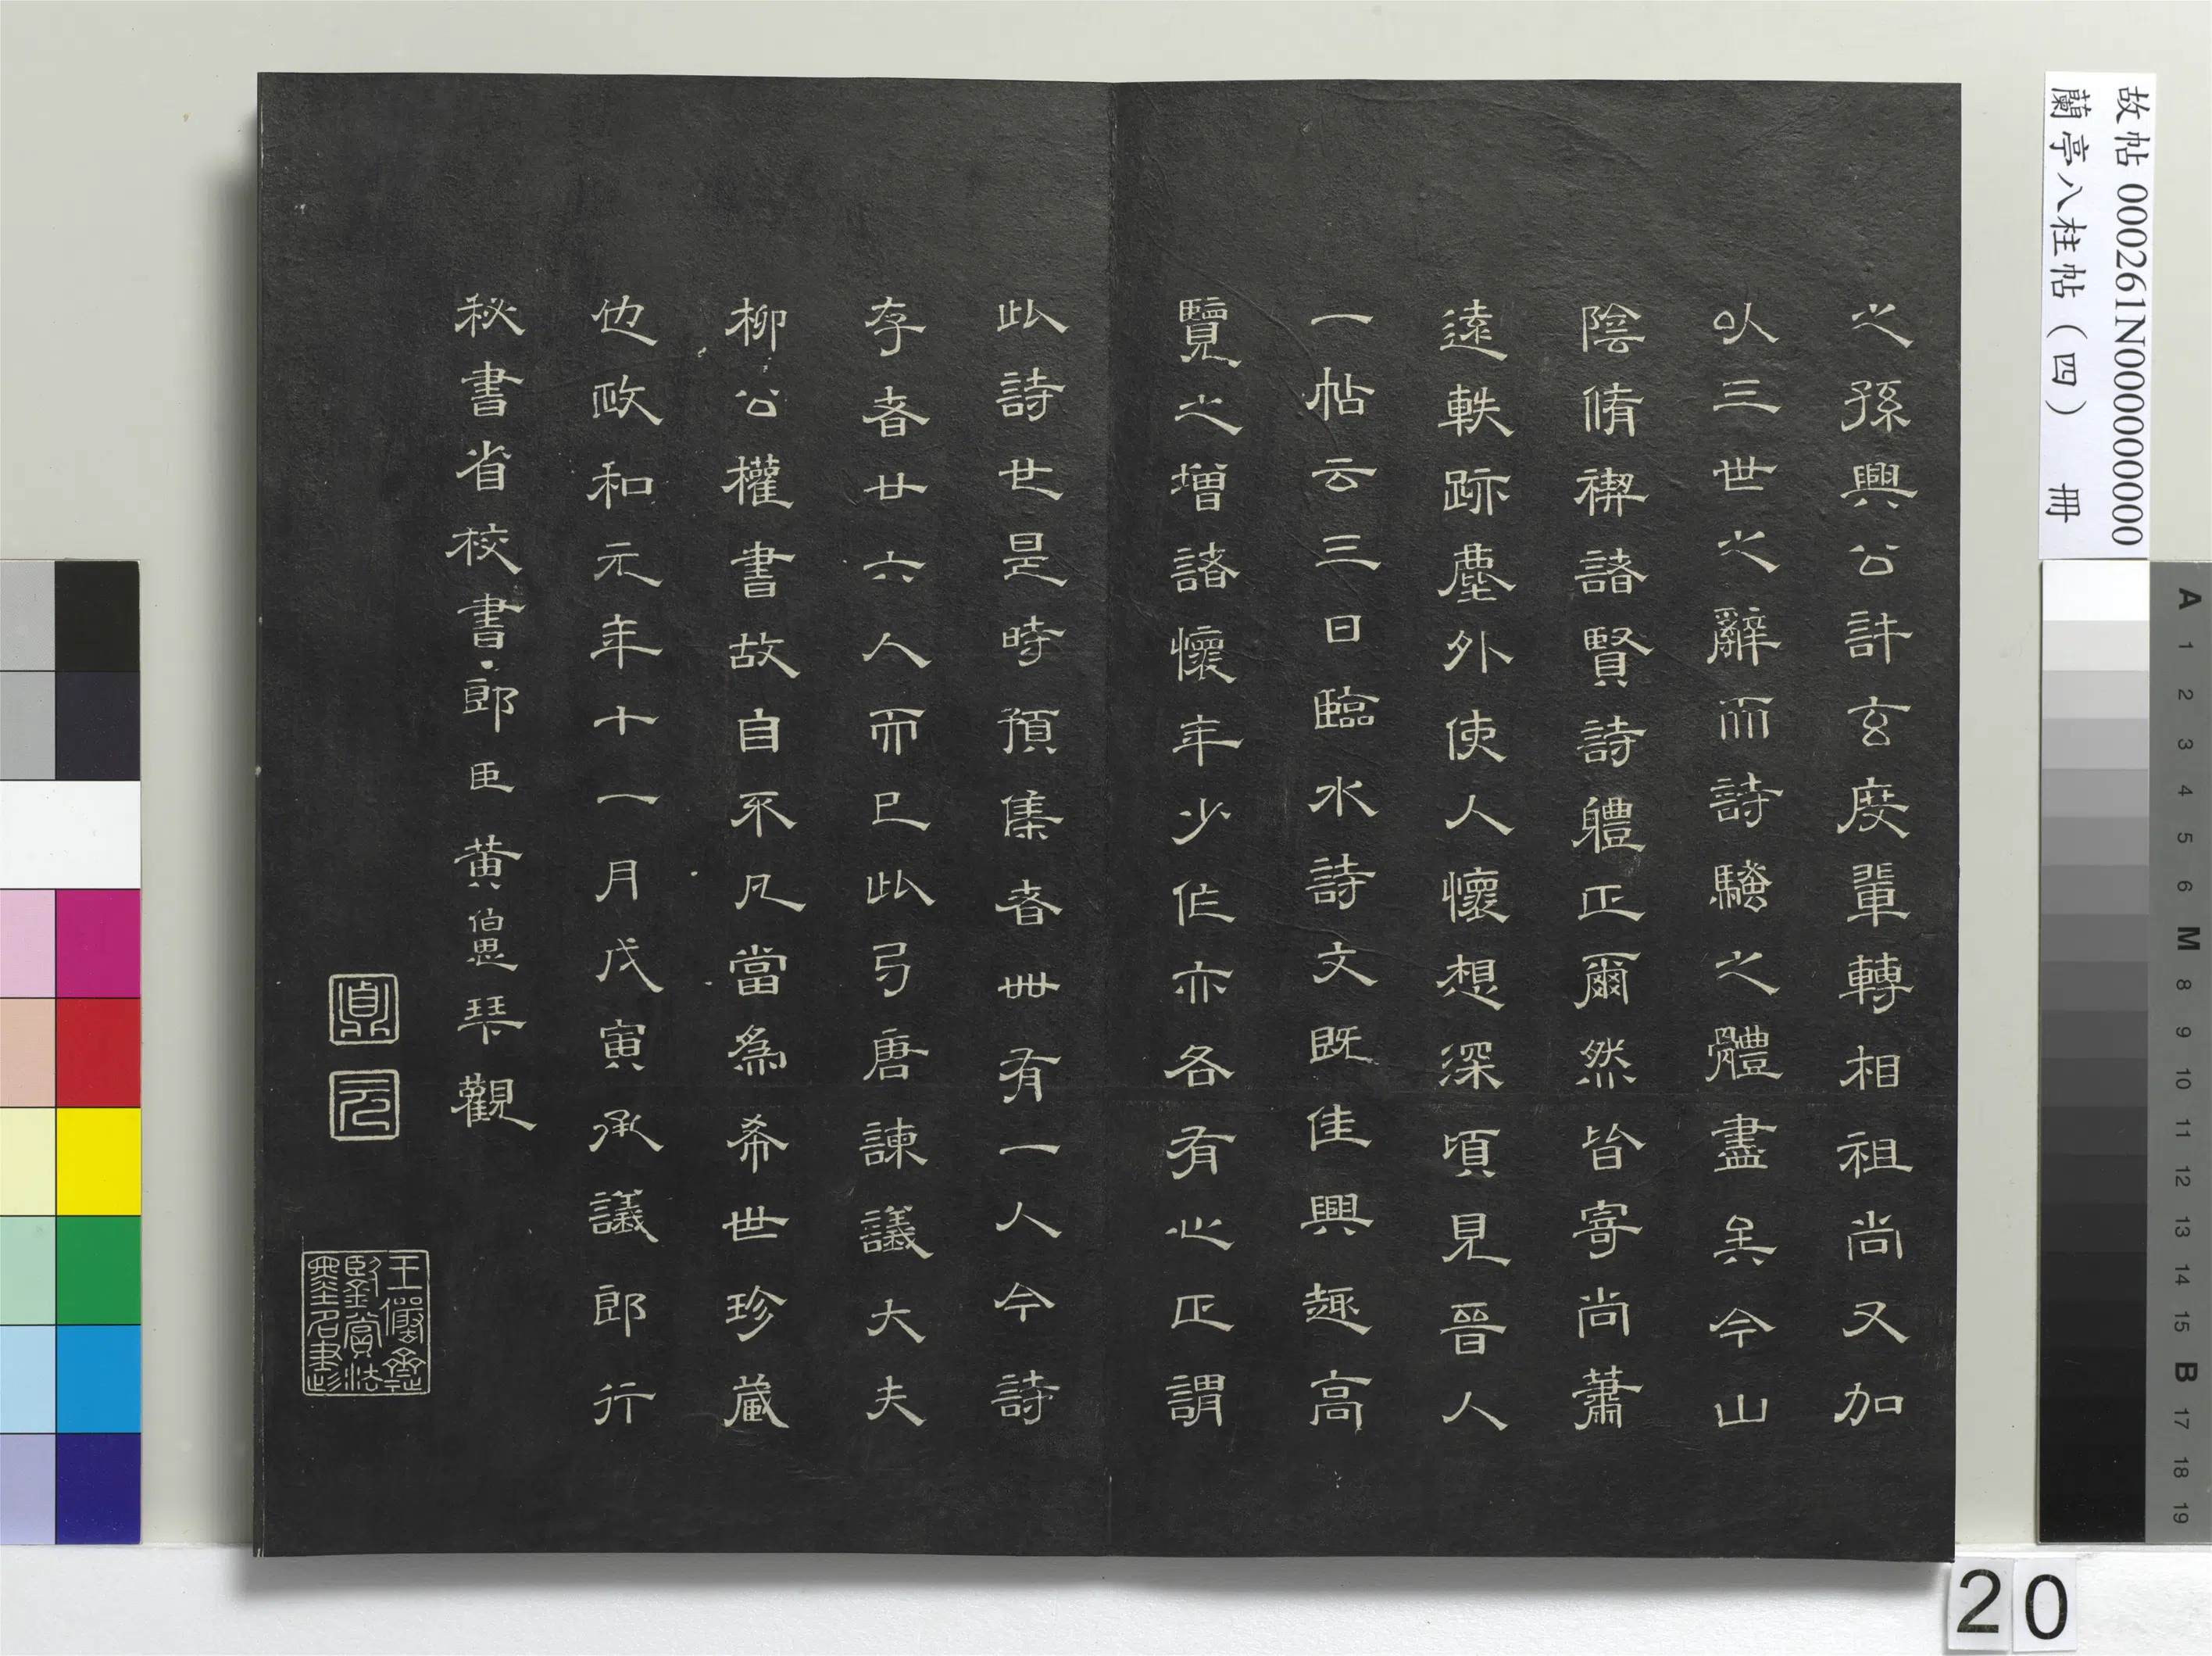 之孫興公許玄度輩轉相祖尚又加
以三世之辭而詩騷之體盡矣今山
陰脩禊諸賢詩體正爾然皆寄尚蕭
遠軼跡塵外使人懷想深頃見晉人
一帖云三日臨水詩文既佳興趣高
覽之增諸懷年少作亦各有心正謂
此詩也是時預集者卌有一人今詩
存者廿六人而已此弓唐諫議大夫
柳公權書故自不凡當為希世珍藏
也政和元年十一月戊寅承議郎行
秘書省校書郎臣黃伯思琴觀
王儼齋
臥鑒賞法
墨名書記
故帖 000261N000000000
蘭亭八柱帖（四） 冊
20
A 1 2 3 4 5 6 M 8 9 10 11 12 13 14 15 B 17 18 19